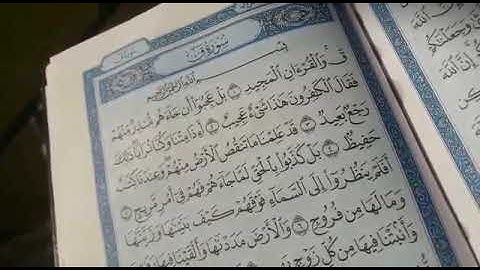 سُورَةُ قٓ
بِسْمِ ٱللَّهِ ٱلرَّحْمَٰنِ ٱلرَّحِيمِ
قٓ وَٱلْقُرْءَانِ ٱلْمَجِيدِ ١ بَلْ عَجِبُوٓا۟ أَن جَآءَهُم مُّنذِرٌ مِّنْهُمْ
فَقَالَ ٱلْكَٰفِرُونَ هَٰذَا شَىْءٌ عَجِيبٌ ٢ أَءِذَا مِتْنَا وَكُنَّا تُرَابًا ذَٰلِكَ
رَجْعٌۢ بَعِيدٌ ٣ قَدْ عَلِمْنَا مَا تَنقُصُ ٱلْأَرْضُ مِنْهُمْ وَعِندَنَا كِتَٰبٌ
حَفِيظٌۢ ٤ بَلْ كَذَّبُوا۟ بِٱلْحَقِّ لَمَّا جَآءَهُمْ فَهُمْ فِىٓ أَمْرٍ مَّرِيجٍ ٥
أَفَلَمْ يَنظُرُوٓا۟ إِلَى ٱلسَّمَآءِ فَوْقَهُمْ كَيْفَ بَنَيْنَٰهَا وَزَيَّنَّٰهَا
وَمَا لَهَا مِن فُرُوجٍ ٦ وَٱلْأَرْضَ مَدَدْنَٰهَا وَأَلْقَيْنَا فِيهَا
وَأَنۢبَتْنَا فِيهَا مِن كُلِّ زَوْجٍۭ